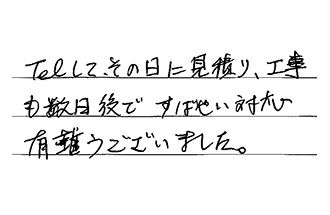 Telして、その日に見積り、工事
も数日後で すばやい対応
有難うございました。